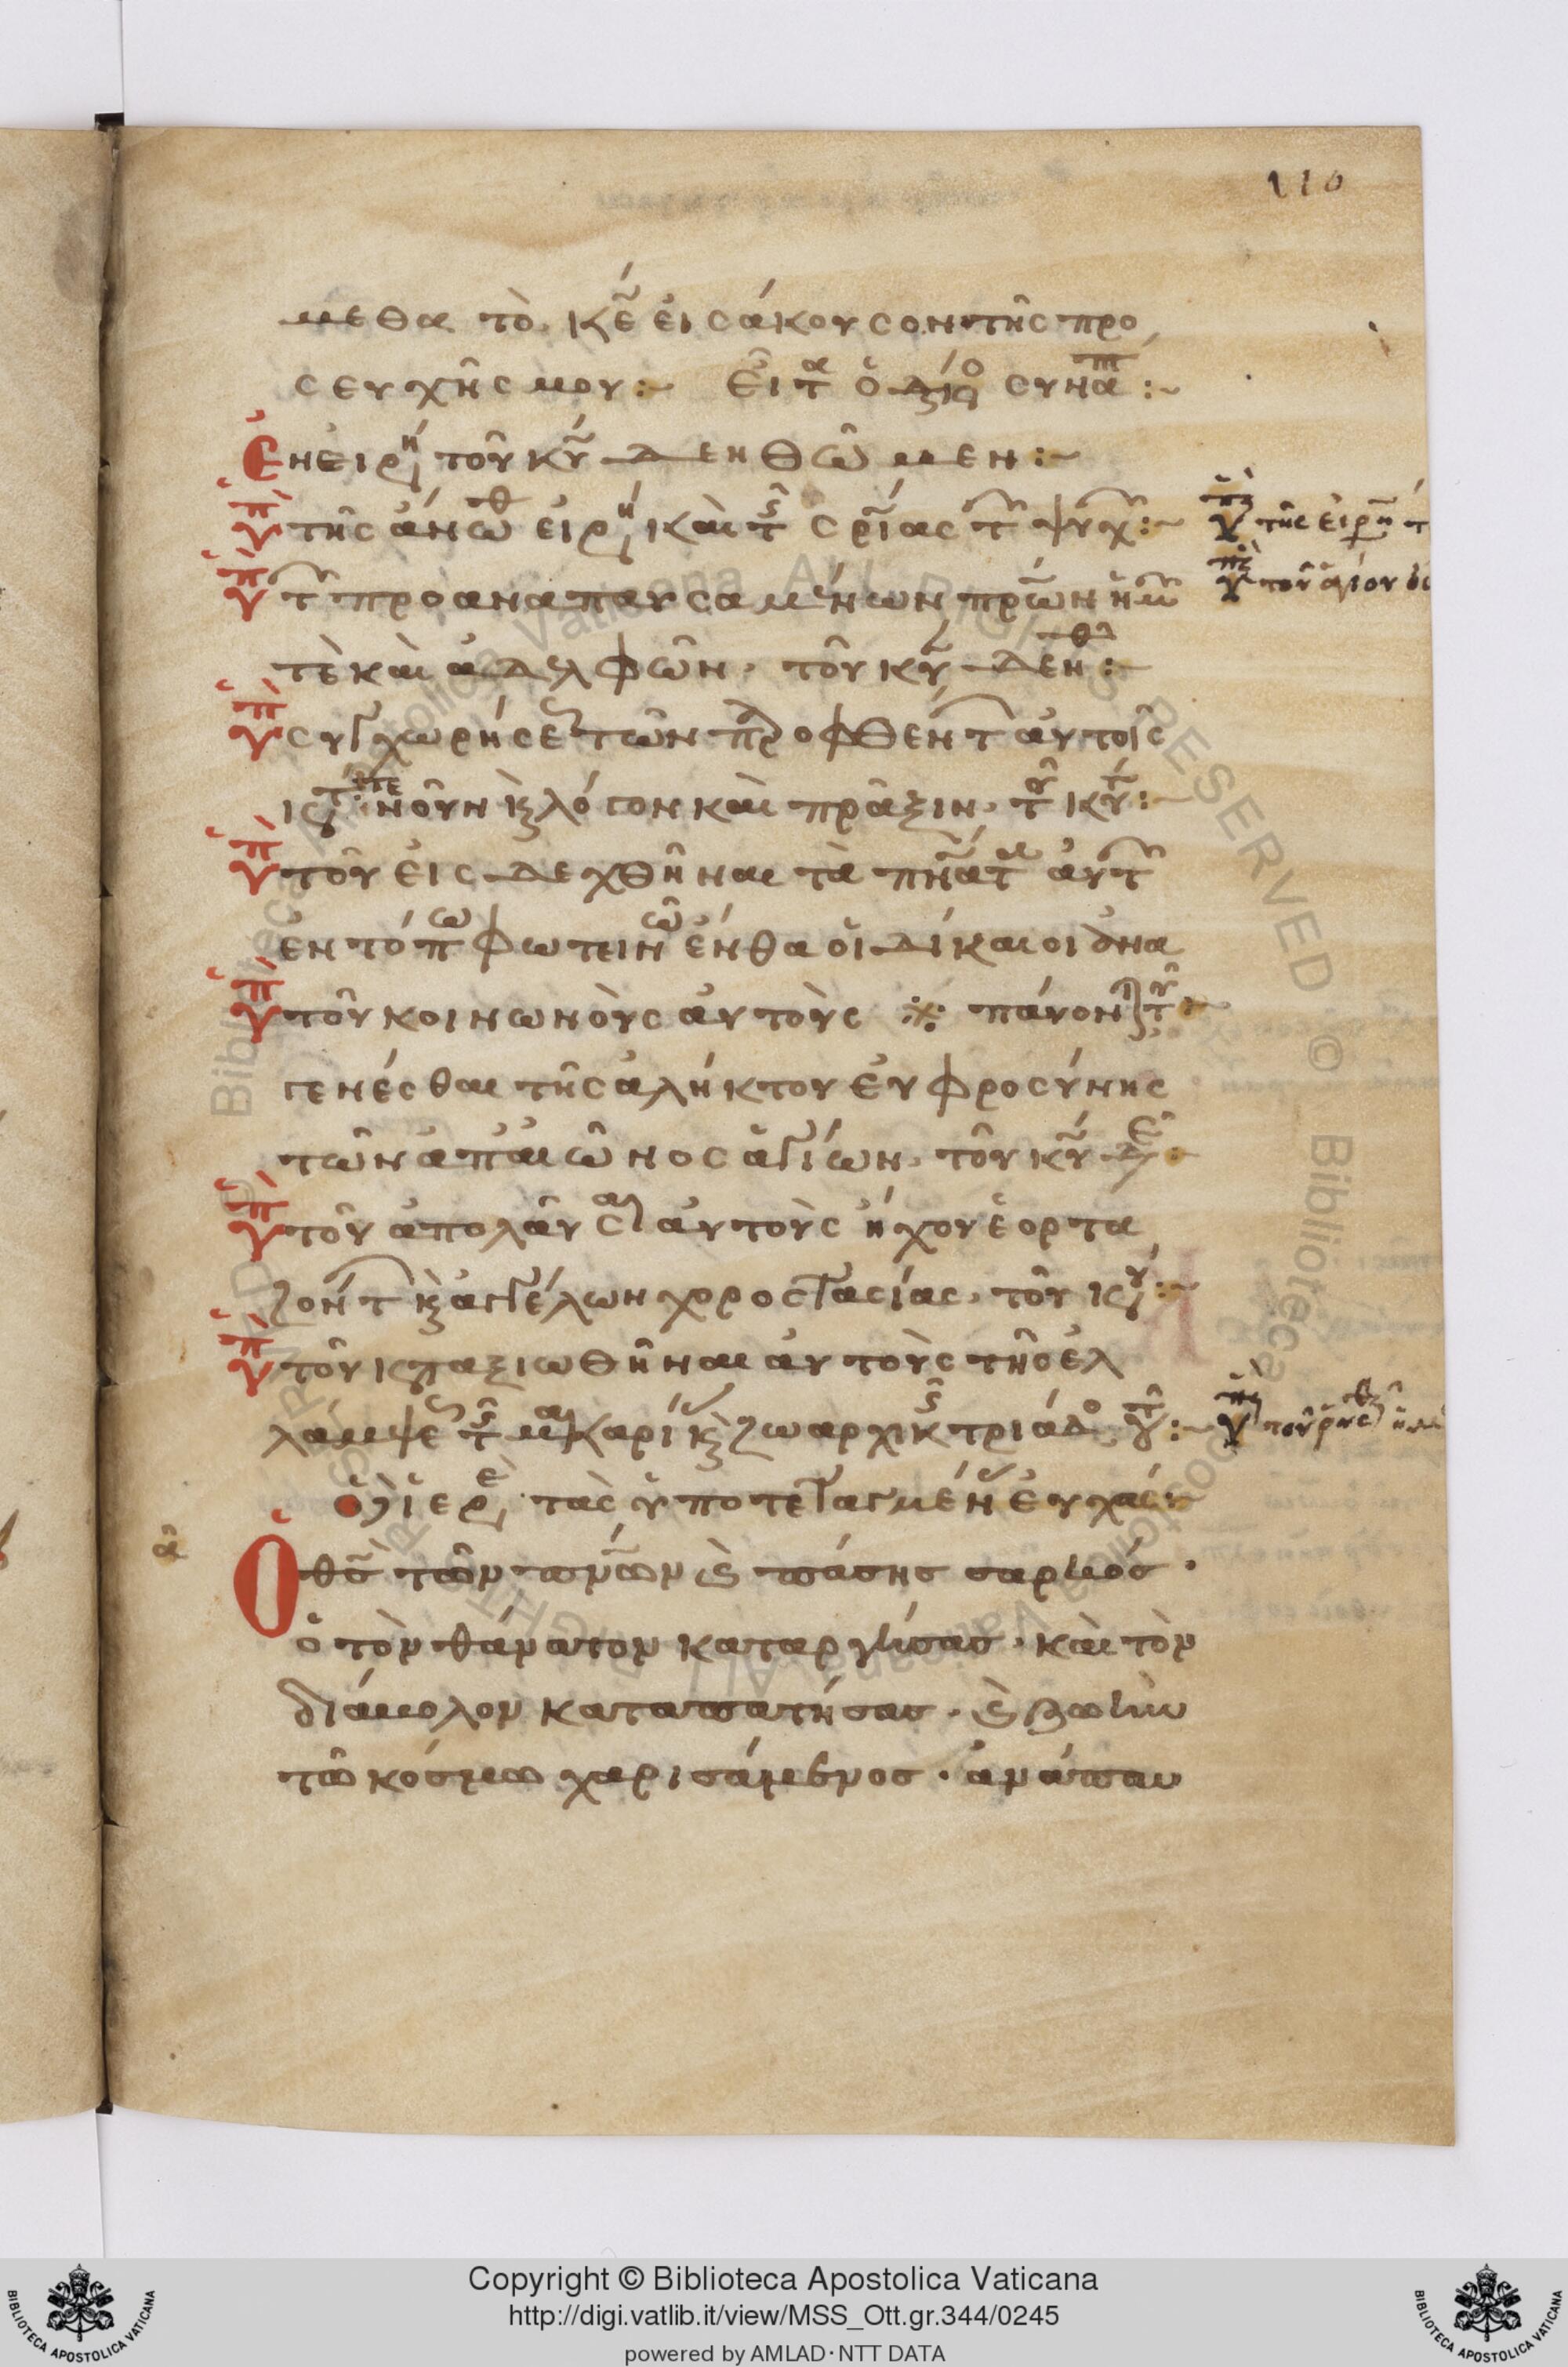 110
μεθα τὸ· κε̄́ εἰσάκουσον τῆς προ
σευχῆς μου:~ εἶτ̄α ὁ διάκο συνᾱπ:~
Ἐν εἰρή τοῦ κῡ δεηθῶμεν:~
Ὑπ τῆς ἄνωθ εἰρή καὶ τῆς σρ̄ίας τ ψυχ:~
Ὑπ τ προαναπαυσαμένων πρ̄ων ἡμ
τὲ καὶ ἀδελφῶν· τοῦ κῡ δεηθ:
Ὑπ συγχωρήσε τῶν πρ οφθέντ αὐτοῖς
κατά τε νοῦν κ λόγον καὶ πρᾶξιν· τοῦ κῡ:~
Ὑπ τοῦ εἰσδεχθῆναι τὰ πν̄ατα αὐτ
ἐν τόπω φωτεινῶ ἔνθα οἱ δίκαιοι ἀνα
Ὑπ τοῦ κοινωνοὺς αὐτοὺς ※ πάυον τοῦ:~
γενέσθαι τῆς ἀλήκτου εὐφροσύνης
τῶν ἀπ' αἰῶνος ἁγίων· τοῦ κῡ δε:
Ὑπ τοῦ ἀπολαῦσαι αὐτοὺς ἤχου ἑορτα
ζόντ κ ἀγγέλων χοροστασίας· τοῦ κυ:~
Ὑπ τοῦ καταξιωθῆναι αὐτοὺς τῆς ἐλ
λάμψε τῆς μακαρί κ ζωαρχικῆς τριάδο τοῦ:~
ὁ ἱερε τὰς ὑποτεταγμέν εὐχάς
Ὁ θς̄ τῶν πν̄ων καὶ πάσης σαρκός·
ὁ τὸν θάνατον καταργήσας· καὶ τὸν
διάβολον καταπατήσας· καὶ ζωὴν
τῶ κόσμω χαρισάμενος· ἀνάπαυ
Ὑπ τῆς εἰρην τ
Ὑπ τοῦ ἁγίου οἴ
Ὑπ τοῦ ρυσθ ἡμ
α
Copyright © Biblioteca Apostolica Vaticana
http://digi.vatlib.it/view/MSS_Ott.gr.344/0245
powered by AMLAD·NTT DATA
BIBLIOTECA APOSTOLICA VATICANA
BIBLIOTECA APOSTOLICA VATICANA